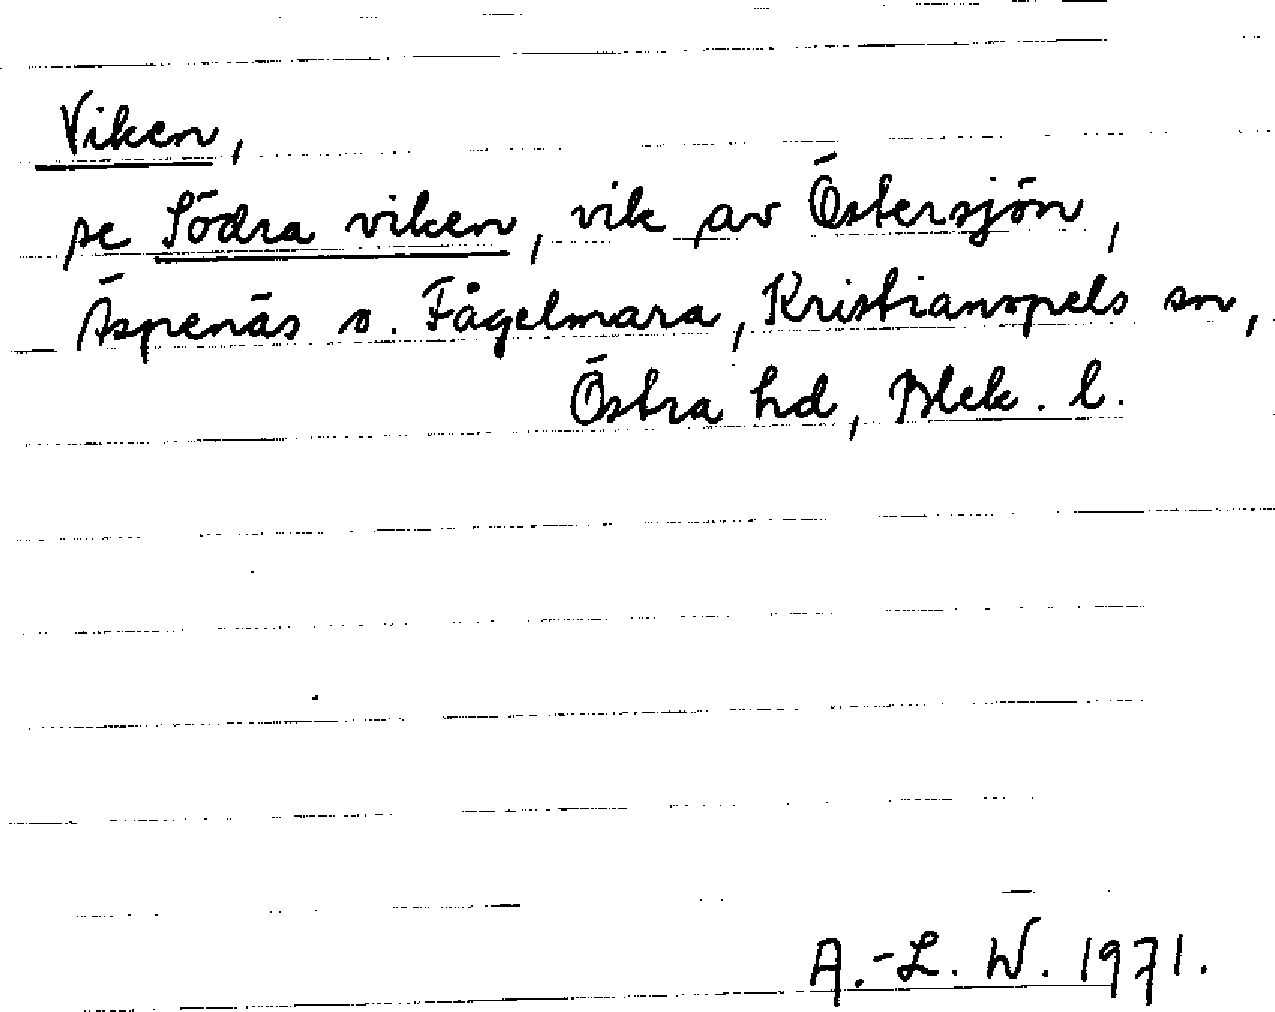 Viken,
se Södra viken, vik av Östersjön,
Äspenäs s. Fågelmara, Kristianopels sn,
Östra hd, Blek. l.
A.-L. W. 1971.